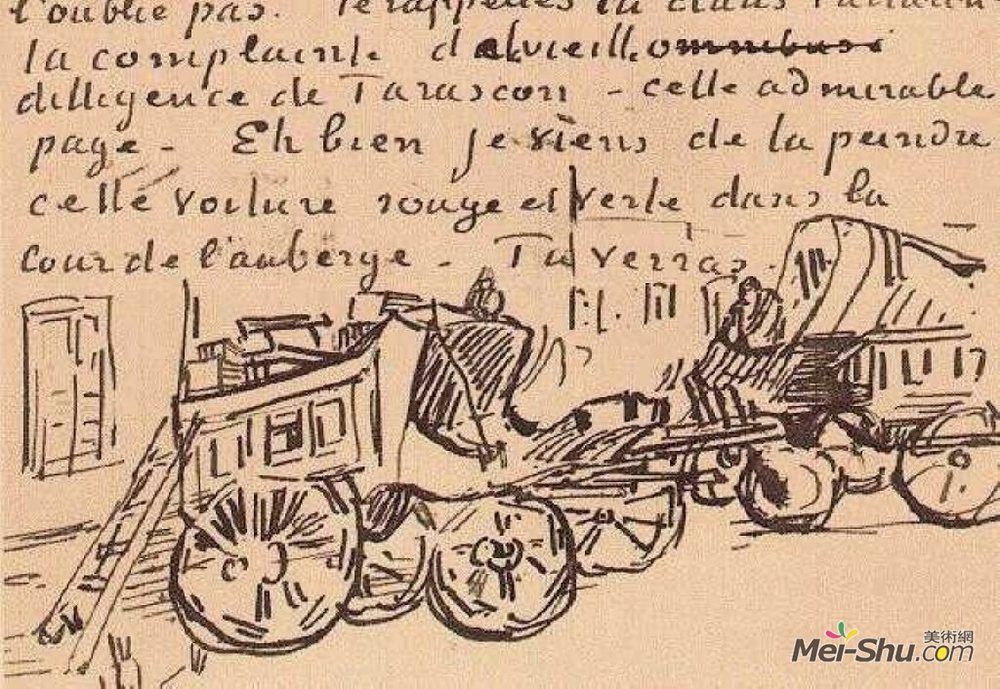 l'oublie pas. Te rappelles tu dans Tartarin
la complainte de la vieille omnibus
dilligence de Tarascon – celle admirable
page – Eh bien je viens de la peindre
cette voiture rouge et verte dans la
cour de l'auberge – Tu verras –
美術網
Mei-Shu.com